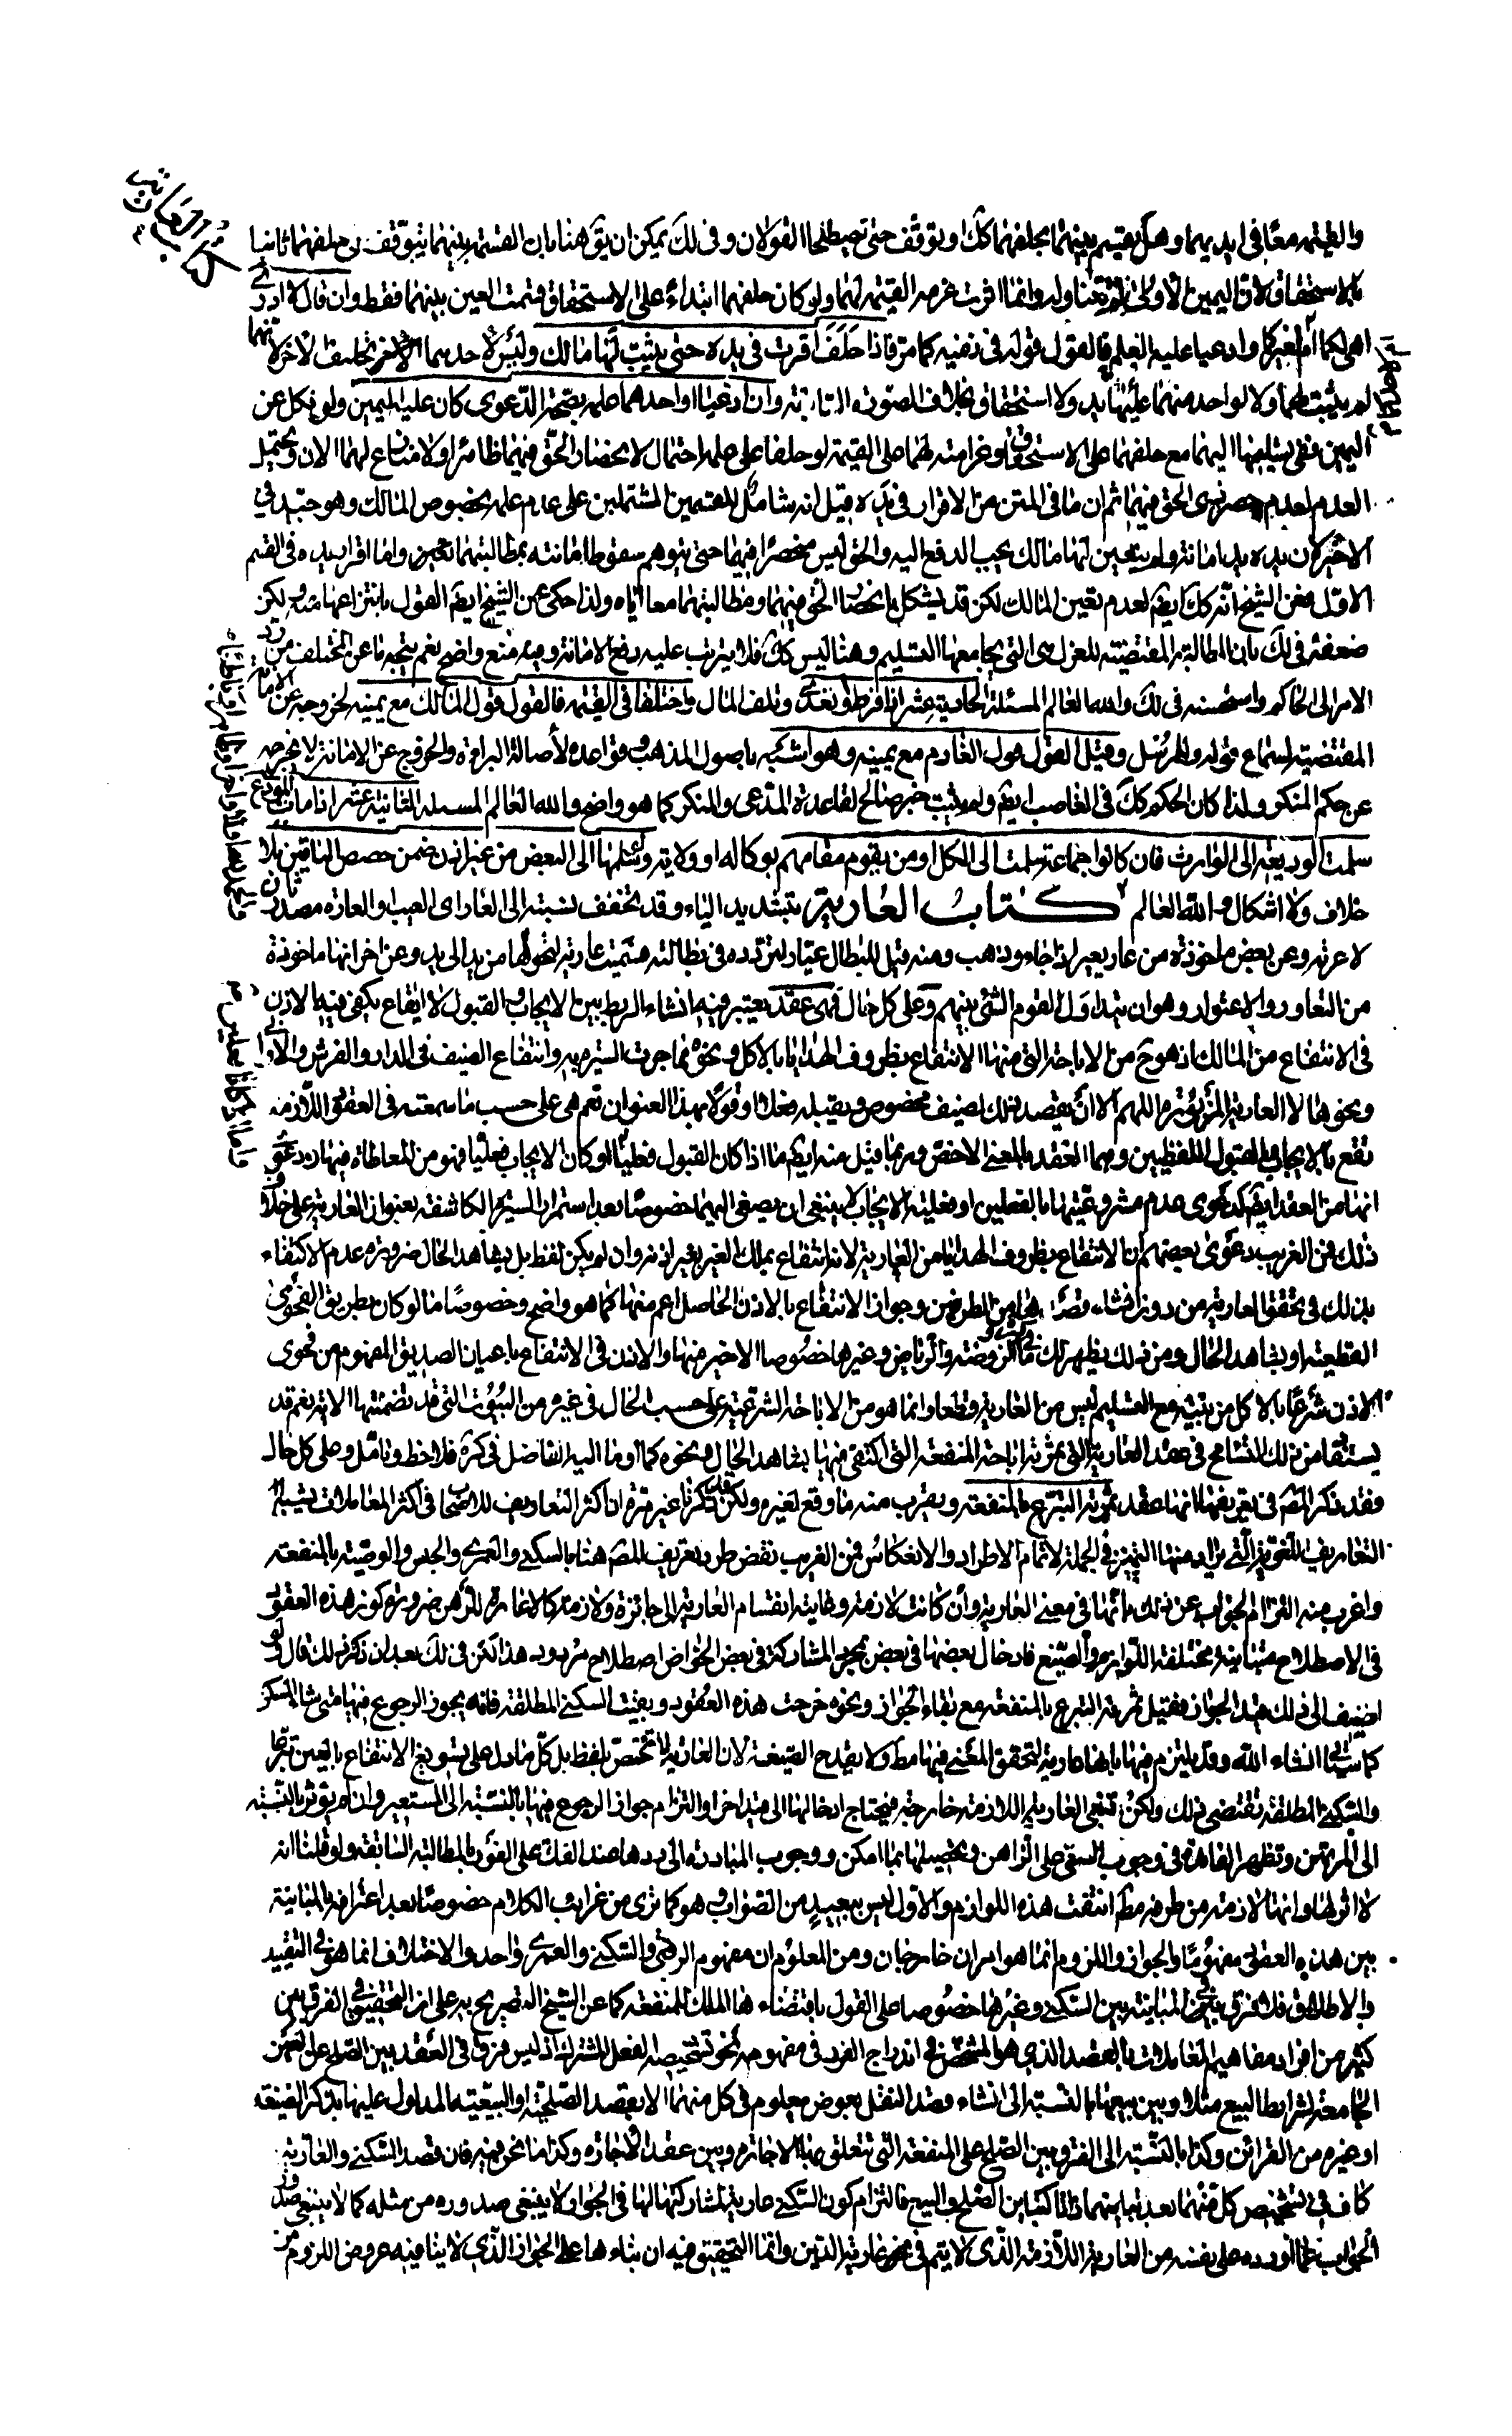 كتاب العارية
والقيمة معا في ايديهما وهل يقسم بينهما بحلفهما كك او يوقف حتى يصطلحا القولان وفي لك يمكن ان يق هنا بان القسمة بينهما يتوقف حلفهما ثانيا
بالاستحقاق لان اليمين الاولى لم تتناوله وانما اثرت غرمه القيمة لهما ولو كان حلفهما ابتداء على الاستحقاق قسمت العين بينهما فقط وان قال لا ادري
اهي لكما ام لغيركما وادعيا عليه العلم فالقول قوله في نفيه كما مر فاذا حلف اقرت في يده حتى يثبت لها مالك وليس لاحدهما احلاف الاخر لانهما
لم يثبت لهما ولا لواحد منهما عليها يد ولا استحقاق بخلاف الصورة السابقة وان ادعيا او احدهما علمه بصحة الدعوى كان عليه اليمين ولو نكل عن
اليمين ففي تسليمها اليهما مع حلفهما على الاستحقاق وغرامته لهما على القيمة لو حلفا على علمه احتمال لانحصار الحق فيهما ظاهرا ولا منازع لهما الان ويحتمل
العدم لعدم حصر ذي الحق فيهما ثم ان ما في المتن من الاقرار في يده قيل انه شامل للقسمين المشتملين على عدم علمه بخصوص المالك وهو جيد في
الاخير لان يده يد امانة ولم يتعين لهما مالك يجب الدفع اليه والحق ليس منحصرا فيهما حتى يتوهم سقوط امانته بمطالبتهما واما اقراره بيده في القسم
الاول فعن الشيخ انه كك ايضا لعدم تعين المالك لكن قد يشكل بانحصار الحق فيهما ومطالبتهما معا اياه ولذا حكى عن الشيخ ايضا القول بانتزاعها منه لكن
ضعفه في لك بان المطالبة المقتضية للعزل هي التي يجامعها التسليم وهنا ليس كك فلا يترتب عليه رفع الامانة وفيه منع واضح نعم يتجه ما عن المختلف من رد
الامر الى الحاكم واستحسنه في لك والله العالم المسئلة الحادية عشر اذا فرط وتعدى وتلف المال واختلفا في القيمة فالقول قول المالك مع يمينه لخروجه عن الامانة
المقتضية لسماع قوله وللمرسل وقيل القول قول الغارم مع يمينه وهو اشبه باصول المذهب وقواعده لأصالة البراءة والخروج عن الامانة لا يخرجه
عن حكم المنكر ولذا كان الحكم كك في الغاصب ايضا ولم يثبت خبر صالح لقاعدة المدعى والمنكر كما هو واضح والله العالم المسئلة الثانية عشر اذا مات المودع
سلمت الوديعة الى الوارث فان كانوا جماعة سلمت الى الكل او من يقوم مقامهم بوكالة او ولاية ولو سلمها الى البعض من غير اذن ضمن حصص الباقين بلا
خلاف ولا اشكال والله العالم كتاب العارية بتشديد الياء وقد تخفف نسبته الى العار اى العيب او العارة مصدر ثان
لاعرته وعن بعض ماخوذة من عار يعير اذا جاء وذهب ومنه قيل للبطال عيار لتردده في بطالته فسميت عارية لتحولها من يد الى يد وعن اخر انها ماخوذة
من التعاور والاعتوار وهو ان يتداول القوم الشئ بينهم وعلى كل حال فهى عقد يعتبر فيه انشاء الربط بين الايجاب والقبول لا ايقاع يكفى فيه الاذن
في الانتفاع من المالك اذ هو ح من الاباحة التي منها الانتفاع بظروف الهدايا بالاكل ونحوه مما جرت السيرة به وانتفاع الضيف في الدار والفرش والاوانى
ونحوهما لا العارية المزبورة اللهم الا ان يقصد لذلك لصنف مخصوص ويقبله فعلا او قولا بهذا العنوان نعم هى على حسب ما سمعته في العقود اللازمة
تقع بالايجاب والقبول اللفظيين وهما العقد بالمعنى الاخص وربما قيل منه ايضا ما اذا كان القبول فعليا اما لو كان الايجاب فعليا فهو من المعاطاة فيها ودعوى
انها من العقد ايضا كدعوى عدم مشروعيتها بالفعلين او فعلية الايجاب لا ينبغى ان يصغى اليهما خصوصا بعد استمرار السيرة الكاشفة بعنوان العارية على خلاف
ذلك فمن الغريب دعوى بعضهم ان الانتفاع بظروف الهدايا من العارية لانه انتفاع بملك الغير بغير اذنه وان لم يكن لفظ بل بشاهد الحال ضرورة عدم الاكتفاء
بذلك في تحقق العارية من دون انشاء وقصد اليها من الطرفين وجواز الانتفاع بالاذن الحاصل اعم منها كما هو واضح وخصوصا ما لو كان بطريق الفحوى
القطعية او بشاهد الحال ومن ذلك يظهر لك ما في الروضة والرياض وغيرها خصوصا الاخير منها والاذن في الانتفاع باعيان الصديق المفهوم من فحوى
الاذن شرعا بالاكل من بيته مع التسليم ليس من العارية قطعا وانما هو من الاباحة الشرعية على حسب الحال في غيره من البيوت التي قد تضمنتها الاية نعم قد
يستفاد من ذلك التسامح في عقد العارية التي ثمرتها اباحة المنفعة التي اكتفى فيها بشاهد الحال ونحوه كما اوما اليه الفاضل في كره فلاحظ وتأمل وعلى كل حال
فقد ذكر المصنف في تعريفها انها عقد ثمرته التبرع بالمنفعة ويقرب منه ما وقع لغيره ولكن قد ذكرنا غير مرة ان اكثر التعاريف للاصحاب في اكثر المعاملات يشبه
التعاريف اللغوية التي يراد منها التمييز في الجملة لا تمام الاطراد والانعكاس فمن الغريب نقض طرد تعريف المصنف هنا بالسكنى والعمرى والحبس والوصية بالمنفعة
واغرب منه التزام الجواب عن ذلك بانها في معنى العارية وان كانت لازمة وغايته انقسام العارية الى جائزة ولازمة كالاعارة للرهن ضرورة كون هذه العقود
في الاصطلاح متباينة مختلفة اللوازم والصيغ فادخال بعضها في بعض بمجرد المشاركة في بعض الخواص اصطلاح مردود هذا لكن في لك بعد ان ذكر ذلك قال ولو
اضيف الى ذلك قيد الجواز فقيل ثمرته التبرع بالمنفعة مع بقاء الجواز ونحوه خرجت هذه العقود وبقيت السكنى المطلقة فانه يجوز الرجوع فيها متى شاء المسكن
كما سيأتي انشاء الله وقد يلتزم فيها بانها عارية لتحقق المعنى فيها مط ولا يقدح الصيغة لان العارية لا تختص بلفظ بل كل ما دل على تسويغ الانتفاع بالعين تبرعا
والسكنى المطلقة تقتضى ذلك ولكن تبقى العارية اللازمة خارجة فيحتاج ادخالها الى قيد اخر او التزام جواز الرجوع فيها بالنسبة الى المستعير وان لم يؤثر بالنسبة
الى المرتهن وتظهر الفائدة في وجوب السعى على الراهن في تحصيلها مما امكن ووجوب المبادرة الى ردها عند الفك على الفور بالمطالبة السابقة ولو قلنا انه
لا اثر لها وانها لازمة من طرفه مط انتفت هذه اللوازم والاول ليس ببعيد من الصواب وهو كما ترى من غرائب الكلام خصوصا بعد اعترافه بالمباينة
بين هذه العقود مفهوما والجواز واللزوم انما هو امران خارجان ومن المعلوم ان مفهوم الرقبى والسكنى والعمرى واحد والاختلاف انما هو في التقييد
والاطلاق فلا فرق بينهن في المباينة بين السكنى وغيرها خصوصا على القول باقتضاءها الملك للمنفعة كما عن الشيخ التصريح به على ان التحقيق في الفرق بين
كثير من افراد مفاهيم المعاملات بالقصد الذي هو المشخص في اندراج الفرد في مفهومه نحو تشخيصه الفعل المشترك اذ ليس فرق في العقد بين الصلح على الثمن
الجامعة لشرايط البيع مثلا وبين بيعها بالنسبة الى انشاء وقصد النقل بعوض معلوم في كل منهما الا بقصد الصلحية او البيعية المدلول عليها بذكر الصيغة
او غيره من القرائن وكذا بالنسبة الى الفرق بين الصلح على المنفعة التي تتعلق بها الاجارة وبين عقد الاجارة وكذا ما نحن فيه فان قصد السكنى والعارية
كاف في تشخيص كل منهما بعد تباينهما ذاتا كتباين الصلح والبيع فالتزام كون السكنى عارية لمشاركتها لها في الجواز لا ينبغى صدوره من مثله كما لا ينبغى صدور
الجواب عما اورده على نفسه من العارية اللازمة الذى لا يتم في عارية الدين وانما التحقيق فيه ان بناءها على الجواز الذى لا ينافيه عروض اللزوم من